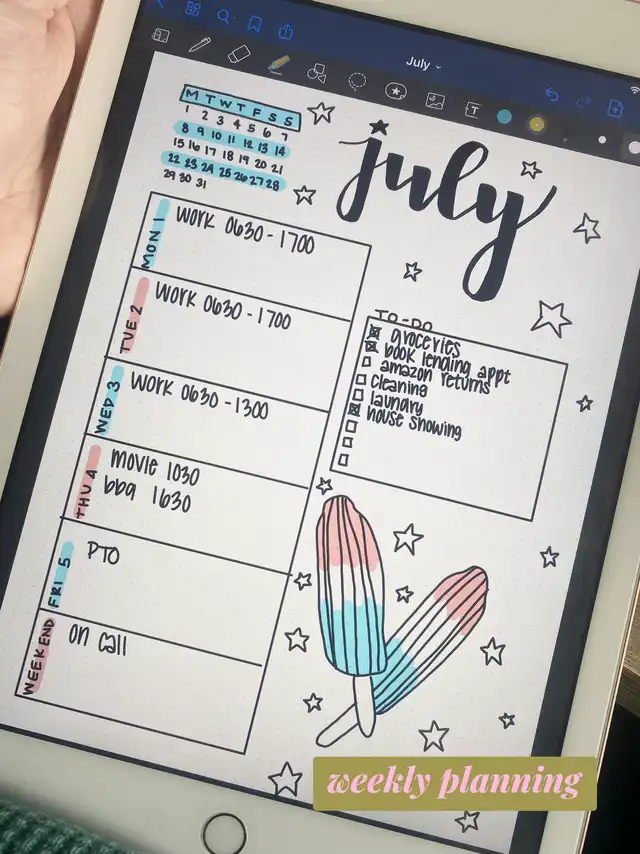 July
T
M T W T F S S
1 2 3 4 5 6 7
8 9 10 11 12 13 14
15 16 17 18 19 20 21
22 23 24 25 26 27 28
29 30 31
july
MON 1
work 0630 - 1700
TUE 2
work 0630 - 1700
WED 3
work 0630 - 1300
THU 4
movie 1030
bbq 1630
FRI 5
PTO
WEEKEND
on call
TO-DO
groceries
book lending appt
amazon returns
cleaning
laundry
house showing
weekly planning